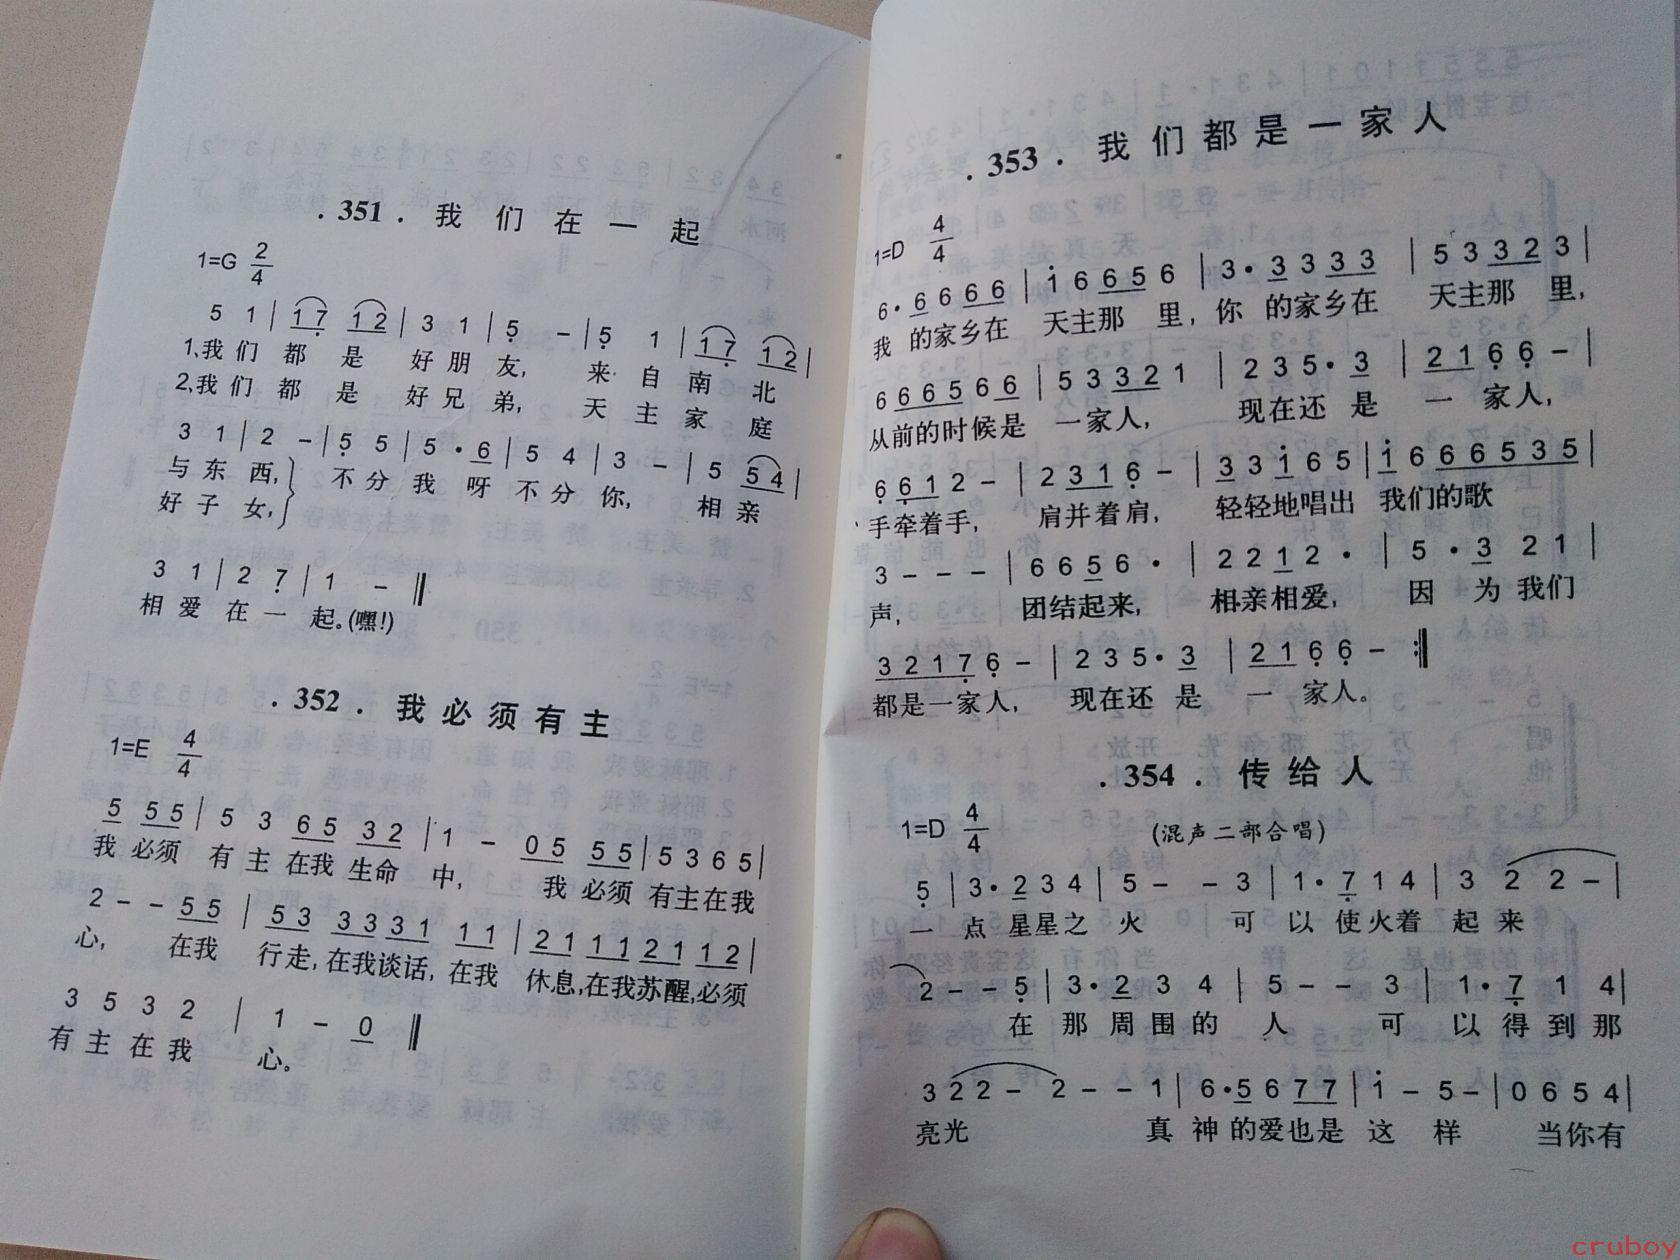 . 351 . 我们在一起
1=G 2/4
5 1 | 1 7 1 2 | 3 1 | 5 – | 5 1 | 1 7 1 2 |
1.我们 都 是 好朋 友, 来 自 南 北
2.我们 都 是 好兄 弟, 天 主 家 庭
3 1 | 2 – | 5 5 | 5 · 6 | 5 4 | 3 – | 5 5 4 |
与东 西, 不分 我 呀 不分 你, 相 亲
好子 女,
3 1 | 2 7 | 1 – ‖
相爱 在一 起。(嘿!)
. 352 . 我必须有主
1=E 4/4
5 5 5 | 5 3 6 5 3 2 | 1 – 0 5 5 5 | 5 3 6 5 |
我 必须 有主在我生命 中, 我 必须 有主在我
2 – – 5 5 | 5 3 3 3 3 1 1 1 | 2 1 1 1 2 1 1 2 |
心, 在我 行走,在我谈话,在我 休息,在我苏醒,必须
3 5 3 2 | 1 – 0 ‖
有主在我 心。
. 353 . 我们都是一家人
1=D 4/4
6 · 6 6 6 6 | i 6 6 5 6 | 3 · 3 3 3 3 | 5 3 3 2 3 |
我 的家乡在 天主那 里, 你 的家乡在 天主那 里,
6 6 6 5 6 6 | 5 3 3 2 1 | 2 3 5 · 3 | 2 1 6 6 – |
从前的时候是 一家人, 现在还 是 一 家人,
6 6 1 2 – | 2 3 1 6 – | 3 3 i 6 5 | i 6 6 6 5 3 5 |
手牵着手, 肩并着肩, 轻轻地唱出 我们的歌
3 – – – | 6 6 5 6 · | 2 2 1 2 · | 5 · 3 2 1 |
声, 团结起来, 相亲相爱, 因 为 我们
3 2 1 7 6 – | 2 3 5 · 3 | 2 1 6 6 – :‖
都是一家人, 现在还 是 一 家人。
. 354 . 传给人
1=D 4/4 (混声二部合唱)
5 | 3 · 2 3 4 | 5 – – 3 | 1 · 7 1 4 | 3 2 2 – |
一 点 星星之 火 可 以 使火着 起 来
2 – – 5 | 3 · 2 3 4 | 5 – – 3 | 1 · 7 1 4 |
在 那 周围的 人 可 以 得到那
3 2 2 – 2 – – 1 | 6 · 5 6 7 7 | i – 5 – | 0 6 5 4 |
亮光 真 神 的爱也是 这 样 当你有
cruboy